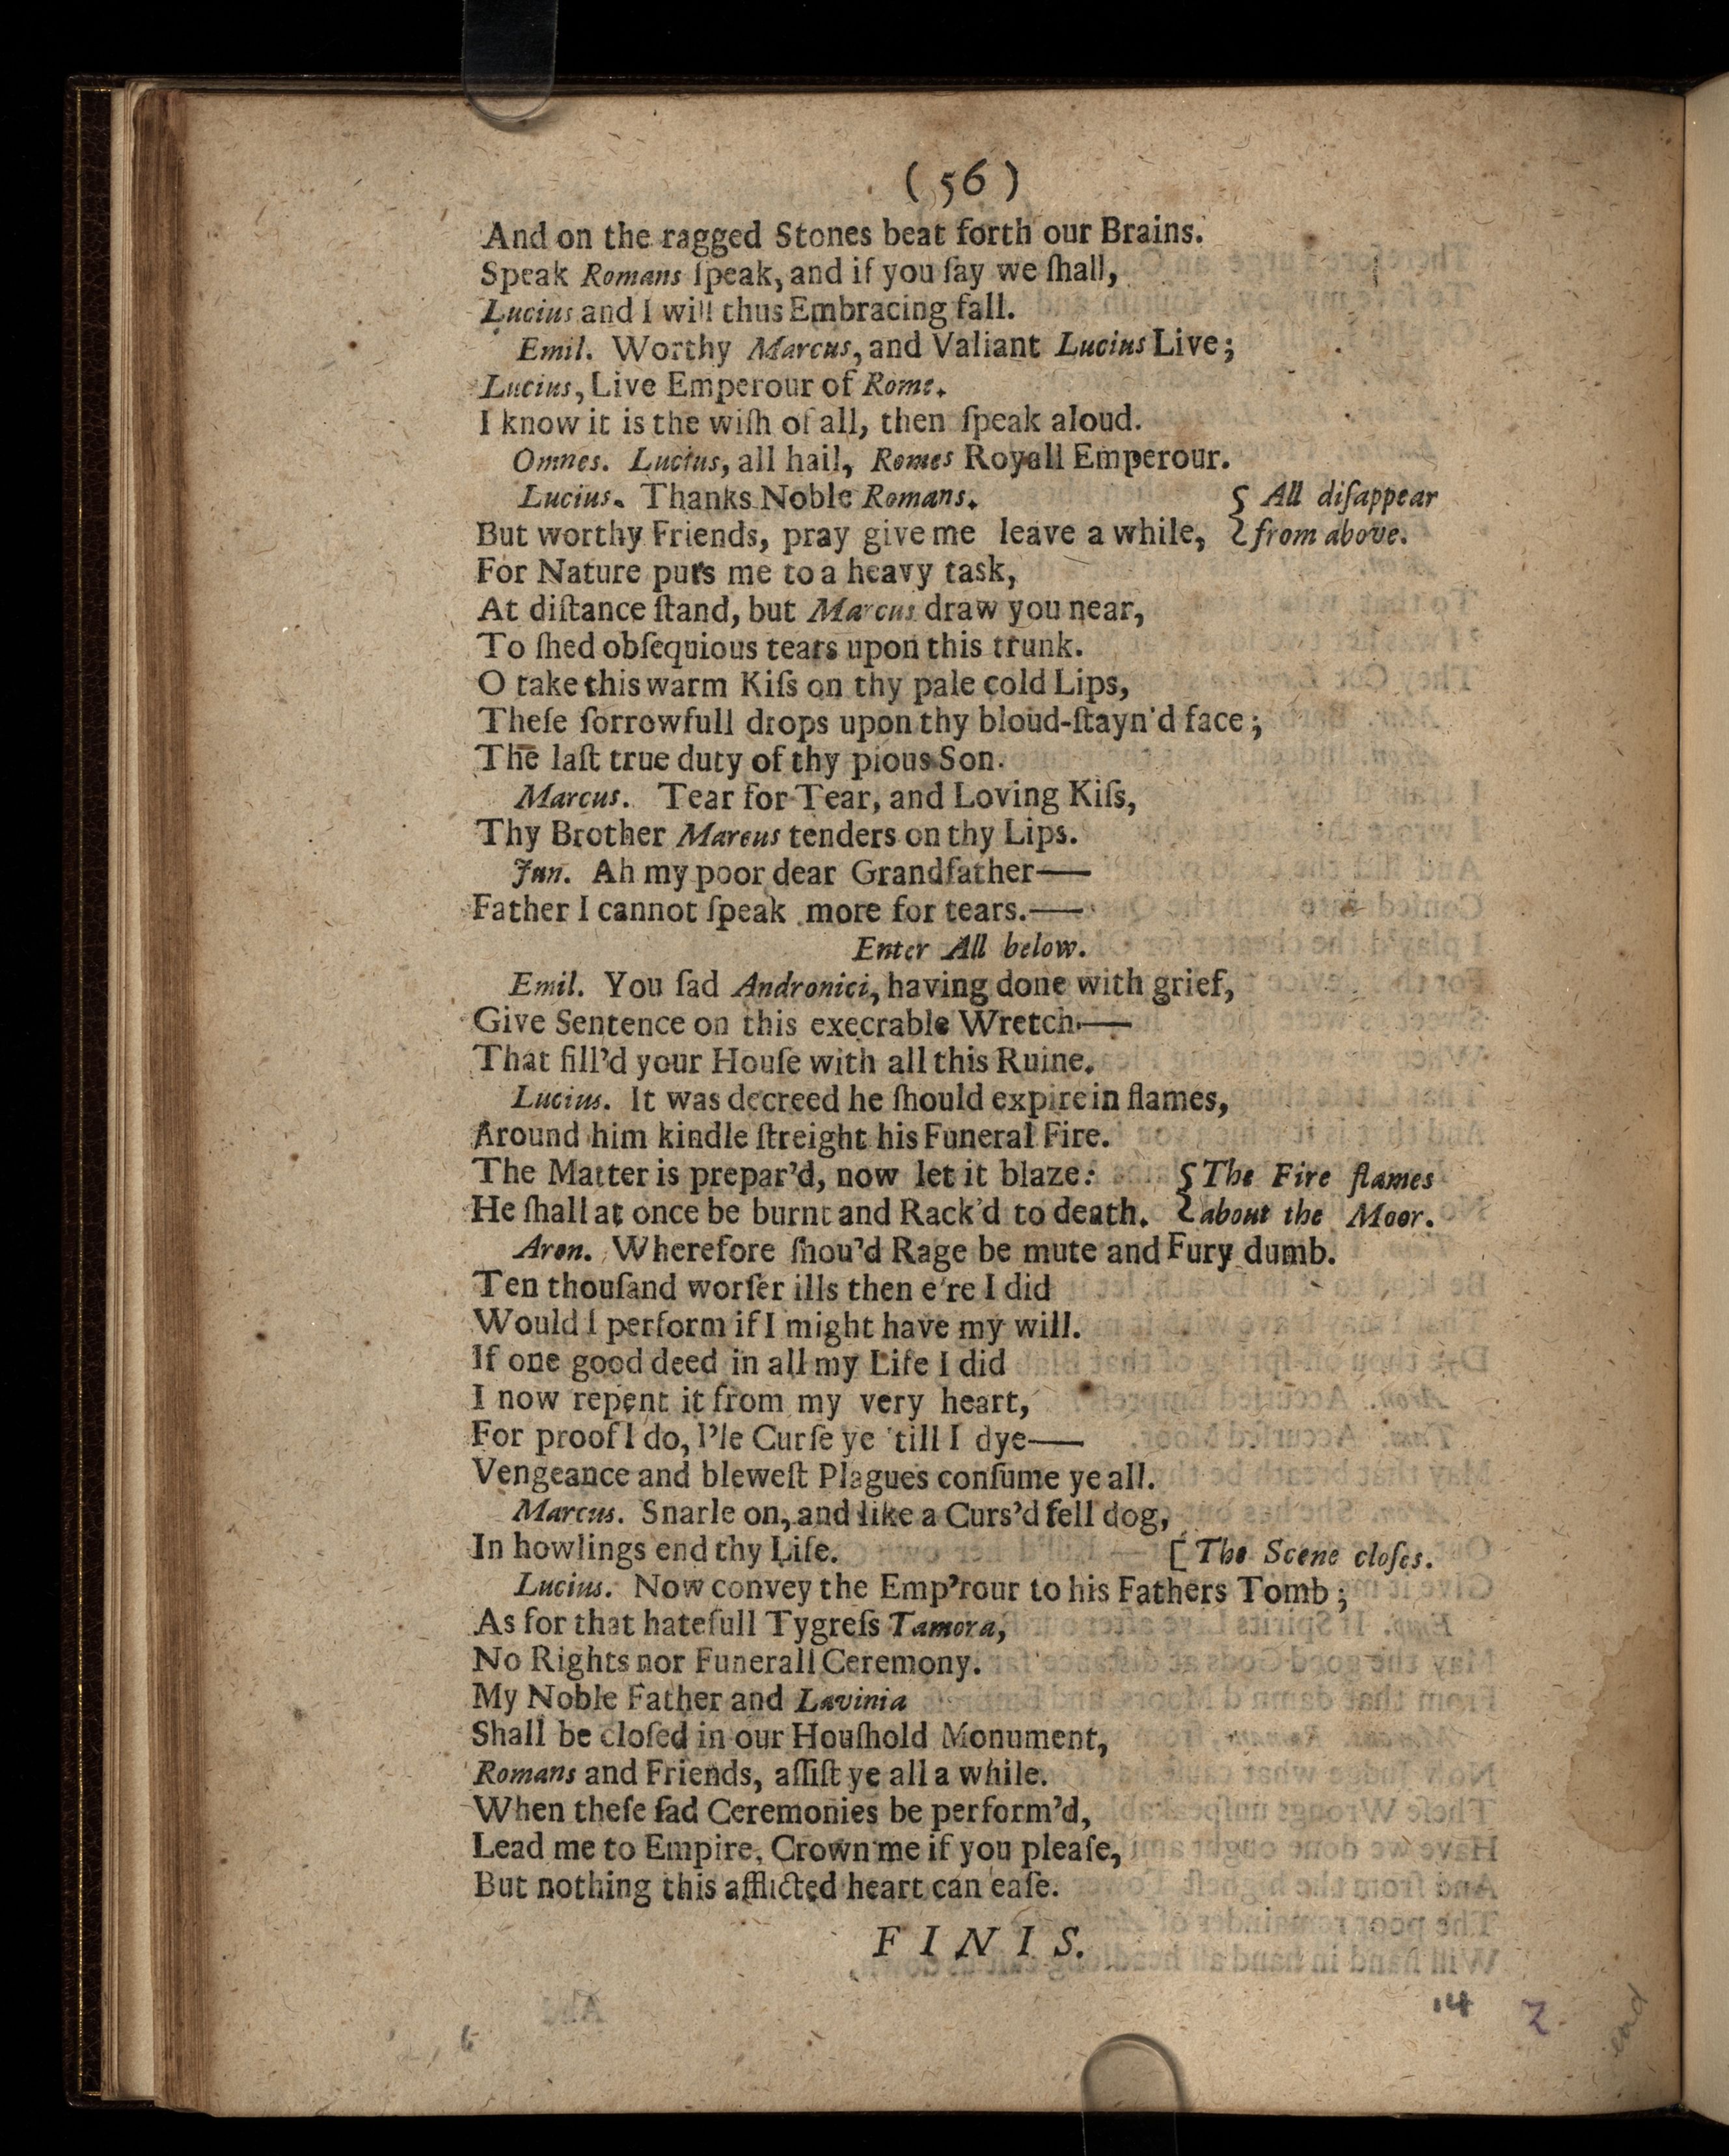 ( 56 )
And on the ragged Stones beat forth our Brains.
Speak Romans ſpeak, and if you ſay we ſhall,
Lucius and I will thus Embracing fall.
Emil. Worthy Marcus, and Valiant Lucius Live;
Lucius, Live Emperour of Rome.
I know it is the wiſh of all, then ſpeak aloud.
Omnes. Lucius, all hail, Romes Royall Emperour.
Lucius. Thanks Noble Romans. { All diſappear
But worthy Friends, pray give me leave a while, { from above.
For Nature puts me to a heavy task,
At diſtance ſtand, but Marcus draw you near,
To ſhed obſequious tears upon this trunk.
O take this warm Kiſs on thy pale cold Lips,
Theſe ſorrowfull drops upon thy bloud-ſtayn'd face;
The laſt true duty of thy pious Son.
Marcus. Tear for Tear, and Loving Kiſs,
Thy Brother Marcus tenders on thy Lips.
Jun. Ah my poor dear Grandfather——
Father I cannot ſpeak more for tears.——
Enter All below.
Emil. You ſad Andronici, having done with grief,
Give Sentence on this execrable Wretch.——
That fill'd your Houſe with all this Ruine.
Lucius. It was decreed he ſhould expire in flames,
Around him kindle ſtreight his Funeral Fire.
The Matter is prepar'd, now let it blaze: { The Fire flames
He ſhall at once be burnt and Rack'd to death. { about the Moor.
Aron. Wherefore ſhou'd Rage be mute and Fury dumb.
Ten thouſand worſer ills then e're I did
Would I perform if I might have my will.
If one good deed in all my Life I did
I now repent it from my very heart,
For proof I do, I'le Curſe ye 'till I dye——
Vengeance and bleweſt Plagues conſume ye all.
Marcus. Snarle on, and like a Curs'd fell dog,
In howlings end thy Life. [ The Scene cloſes.
Lucius. Now convey the Emp'rour to his Fathers Tomb;
As for that hatefull Tygreſs Tamora,
No Rights nor Funerall Ceremony.
My Noble Father and Lavinia
Shall be cloſed in our Houſhold Monument,
Romans and Friends, aſſiſt ye all a while.
When theſe ſad Ceremonies be perform'd,
Lead me to Empire, Crown me if you pleaſe,
But nothing this afflicted heart can eaſe.
F I N I S.
14
end